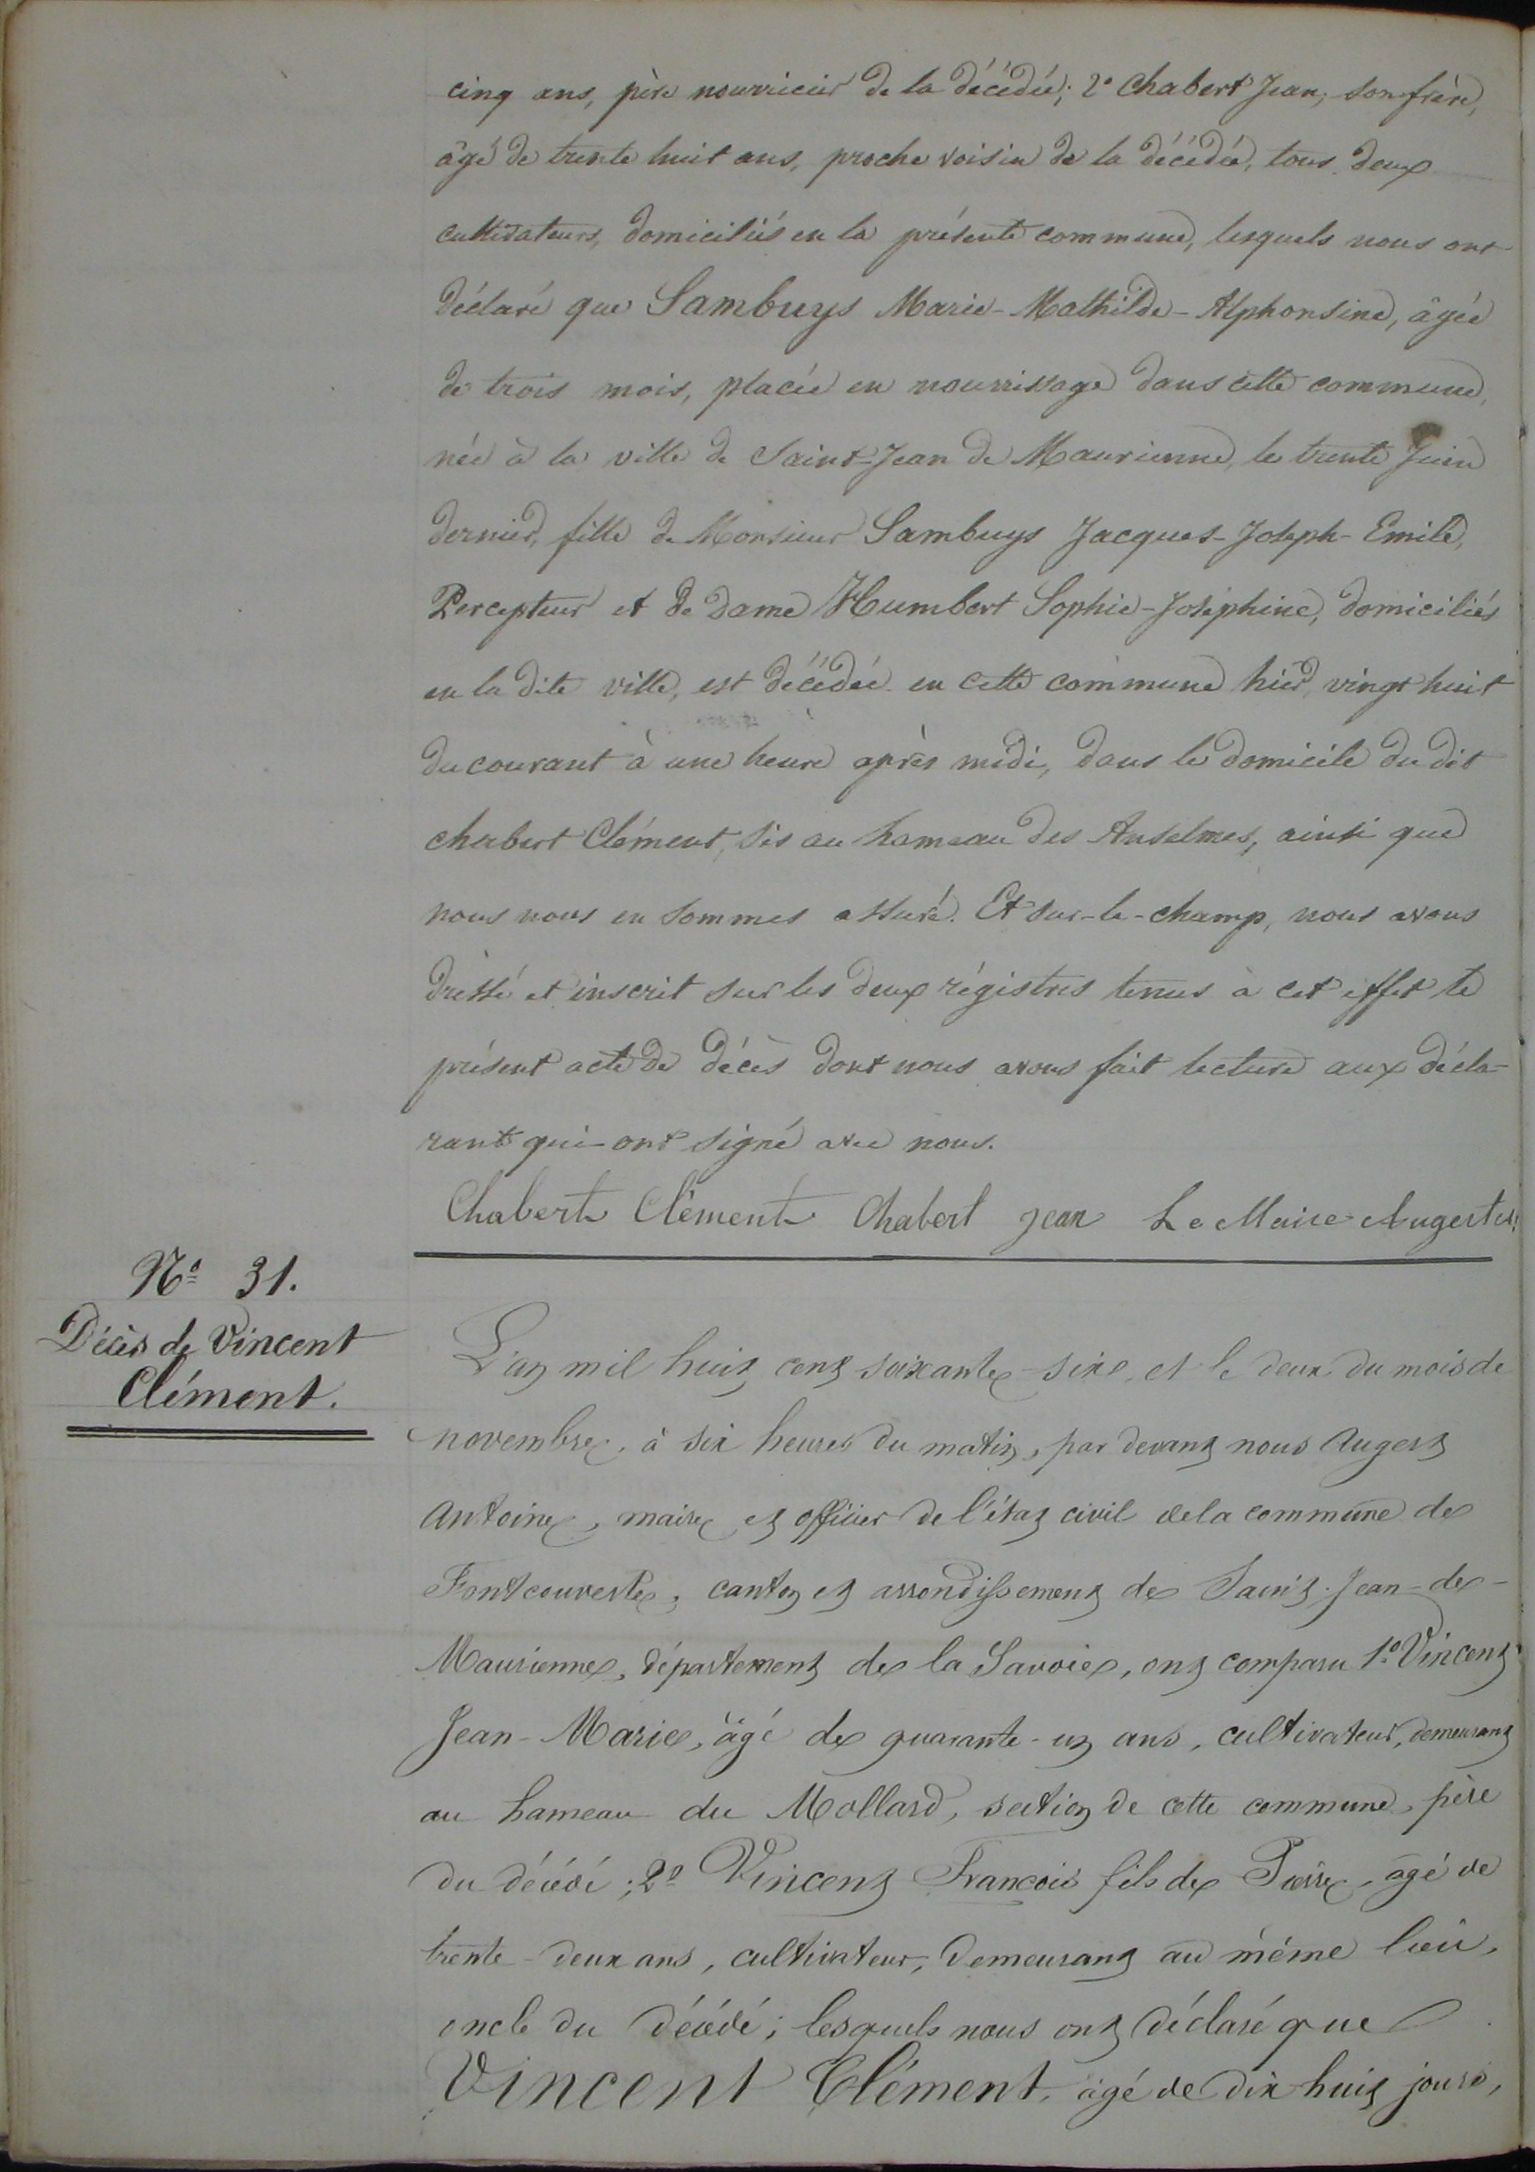 cinq ans, père nourricier de la décédée; 2° Chabert Jean, son frère,
âgé de trente huit ans, proche voisin de la décédée, tous deux
cultivateurs, domiciliés en la présente commune, lesquels nous ont
déclaré que Sambuys Marie-Mathilde-Alphonsine, âgée
de trois mois, placée en nourrissage dans cette commune,
née à la ville de Saint-Jean de Maurienne, le trente Juin
dernier, fille de Monsieur Sambuys Jacques-Joseph-Emile,
Percepteur et de Dame Humbert Sophie-Joséphine, domiciliés
en la dite ville, est décédée en cette commune hier, vingt huit
du courant à une heure après midi, dans le domicile du dit
chabert Clément, sis au hameau des Anselmes, ainsi que
nous nous en sommes assuré. Et sur-le-champ, nous avons
dressé et inscrit sur les deux régistres tenus à cet effet le
présent acte de décès dont nous avons fait lecture aux décla-
rant qui ont signé avec nous.
Chabert Clément Chabert jean Le Maire Augert
N° 31.
Décès de Vincent
Clément.
L'an mil huit cent soixante-six, et le deux du mois de
novembre, à six heures du matin, par devant nous Augert
Antoine, maire et officier de l'état civil de la commune de
Fontcouverte, canton et arrondissement de Saint-Jean-de-
Maurienne, département de la Savoie, ont comparu 1° Vincent
Jean-Marie, âgé de quarante-un ans, cultivateur, demeurant
au hameau du Mollard, section de cette commune, père
du décédé; 2° Vincent François fils de Pierre, âgé de
trente-deux ans, cultivateur, demeurant au même lieu,
oncle du décédé; lesquels nous ont déclaré que
Vincent Clément, âgé de dix-huit jours,